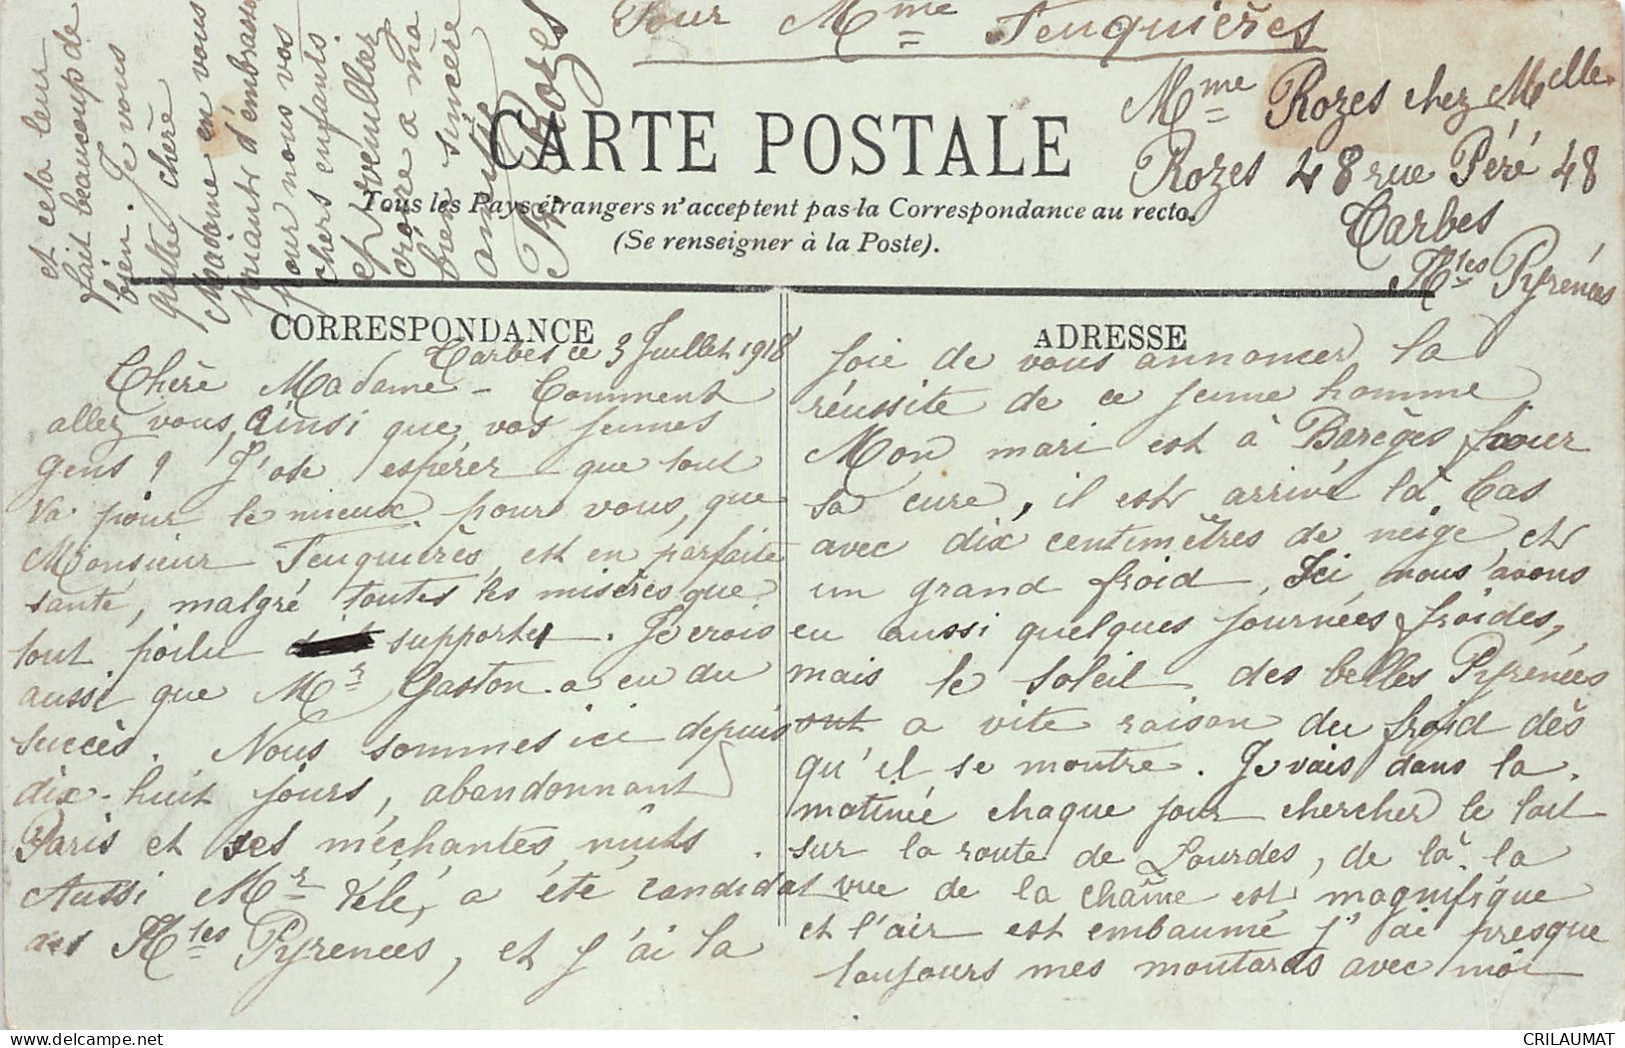 Pour Mme Feuquières
Mme Rozes chez Melle
Rozes 48 rue Péré 48
Tarbes
Htes Pyrénées
CARTE POSTALE
Tous les Pays étrangers n'acceptent pas la Correspondance au recto.
(Se renseigner à la Poste).
CORRESPONDANCE
ADRESSE
Tarbes ce 3 Juillet 1918
Chère Madame - Comment
allez vous, ainsi que vos jeunes
gens ? J'ose espérer que tout
va pour le mieux pour vous, que
Monsieur Feuquières, est en parfaite
santé, malgré toutes les misères que
tout poilu supporte. Je crois
aussi que Mr Gaston a eu du
succès. Nous sommes ici depuis
dix-huit jours, abandonnant
Paris et ses méchantes nuits.
Aussi Mr Vélé, a été candidat
des Htes Pyrenées, et j'ai la
joie de vous annoncer la
réussite de ce jeune homme
Mon mari est à Barèges pour
sa cure, il est arrivé là bas
avec dix centimètres de neige, et
un grand froid, Ici nous avons
eu aussi quelques journées froides,
mais le soleil des belles Pyrénées
ont a vite raison du froid dès
qu'il se montre. Je vais dans la
matinée chaque jour chercher le lait
sur la route de Lourdes, de là la
vue de la chaîne est magnifique
et l'air est embaumé j'ai presque
toujours mes moutards avec moi
et cela leur
fait beaucoup de
bien. Je vous
quitte chère
Madame en vous
priant d'embrasser
pour nous vos
chers enfants.
et veuillez
croire a ma
bien sincère
amitié
Rozes
CRILAUMAT